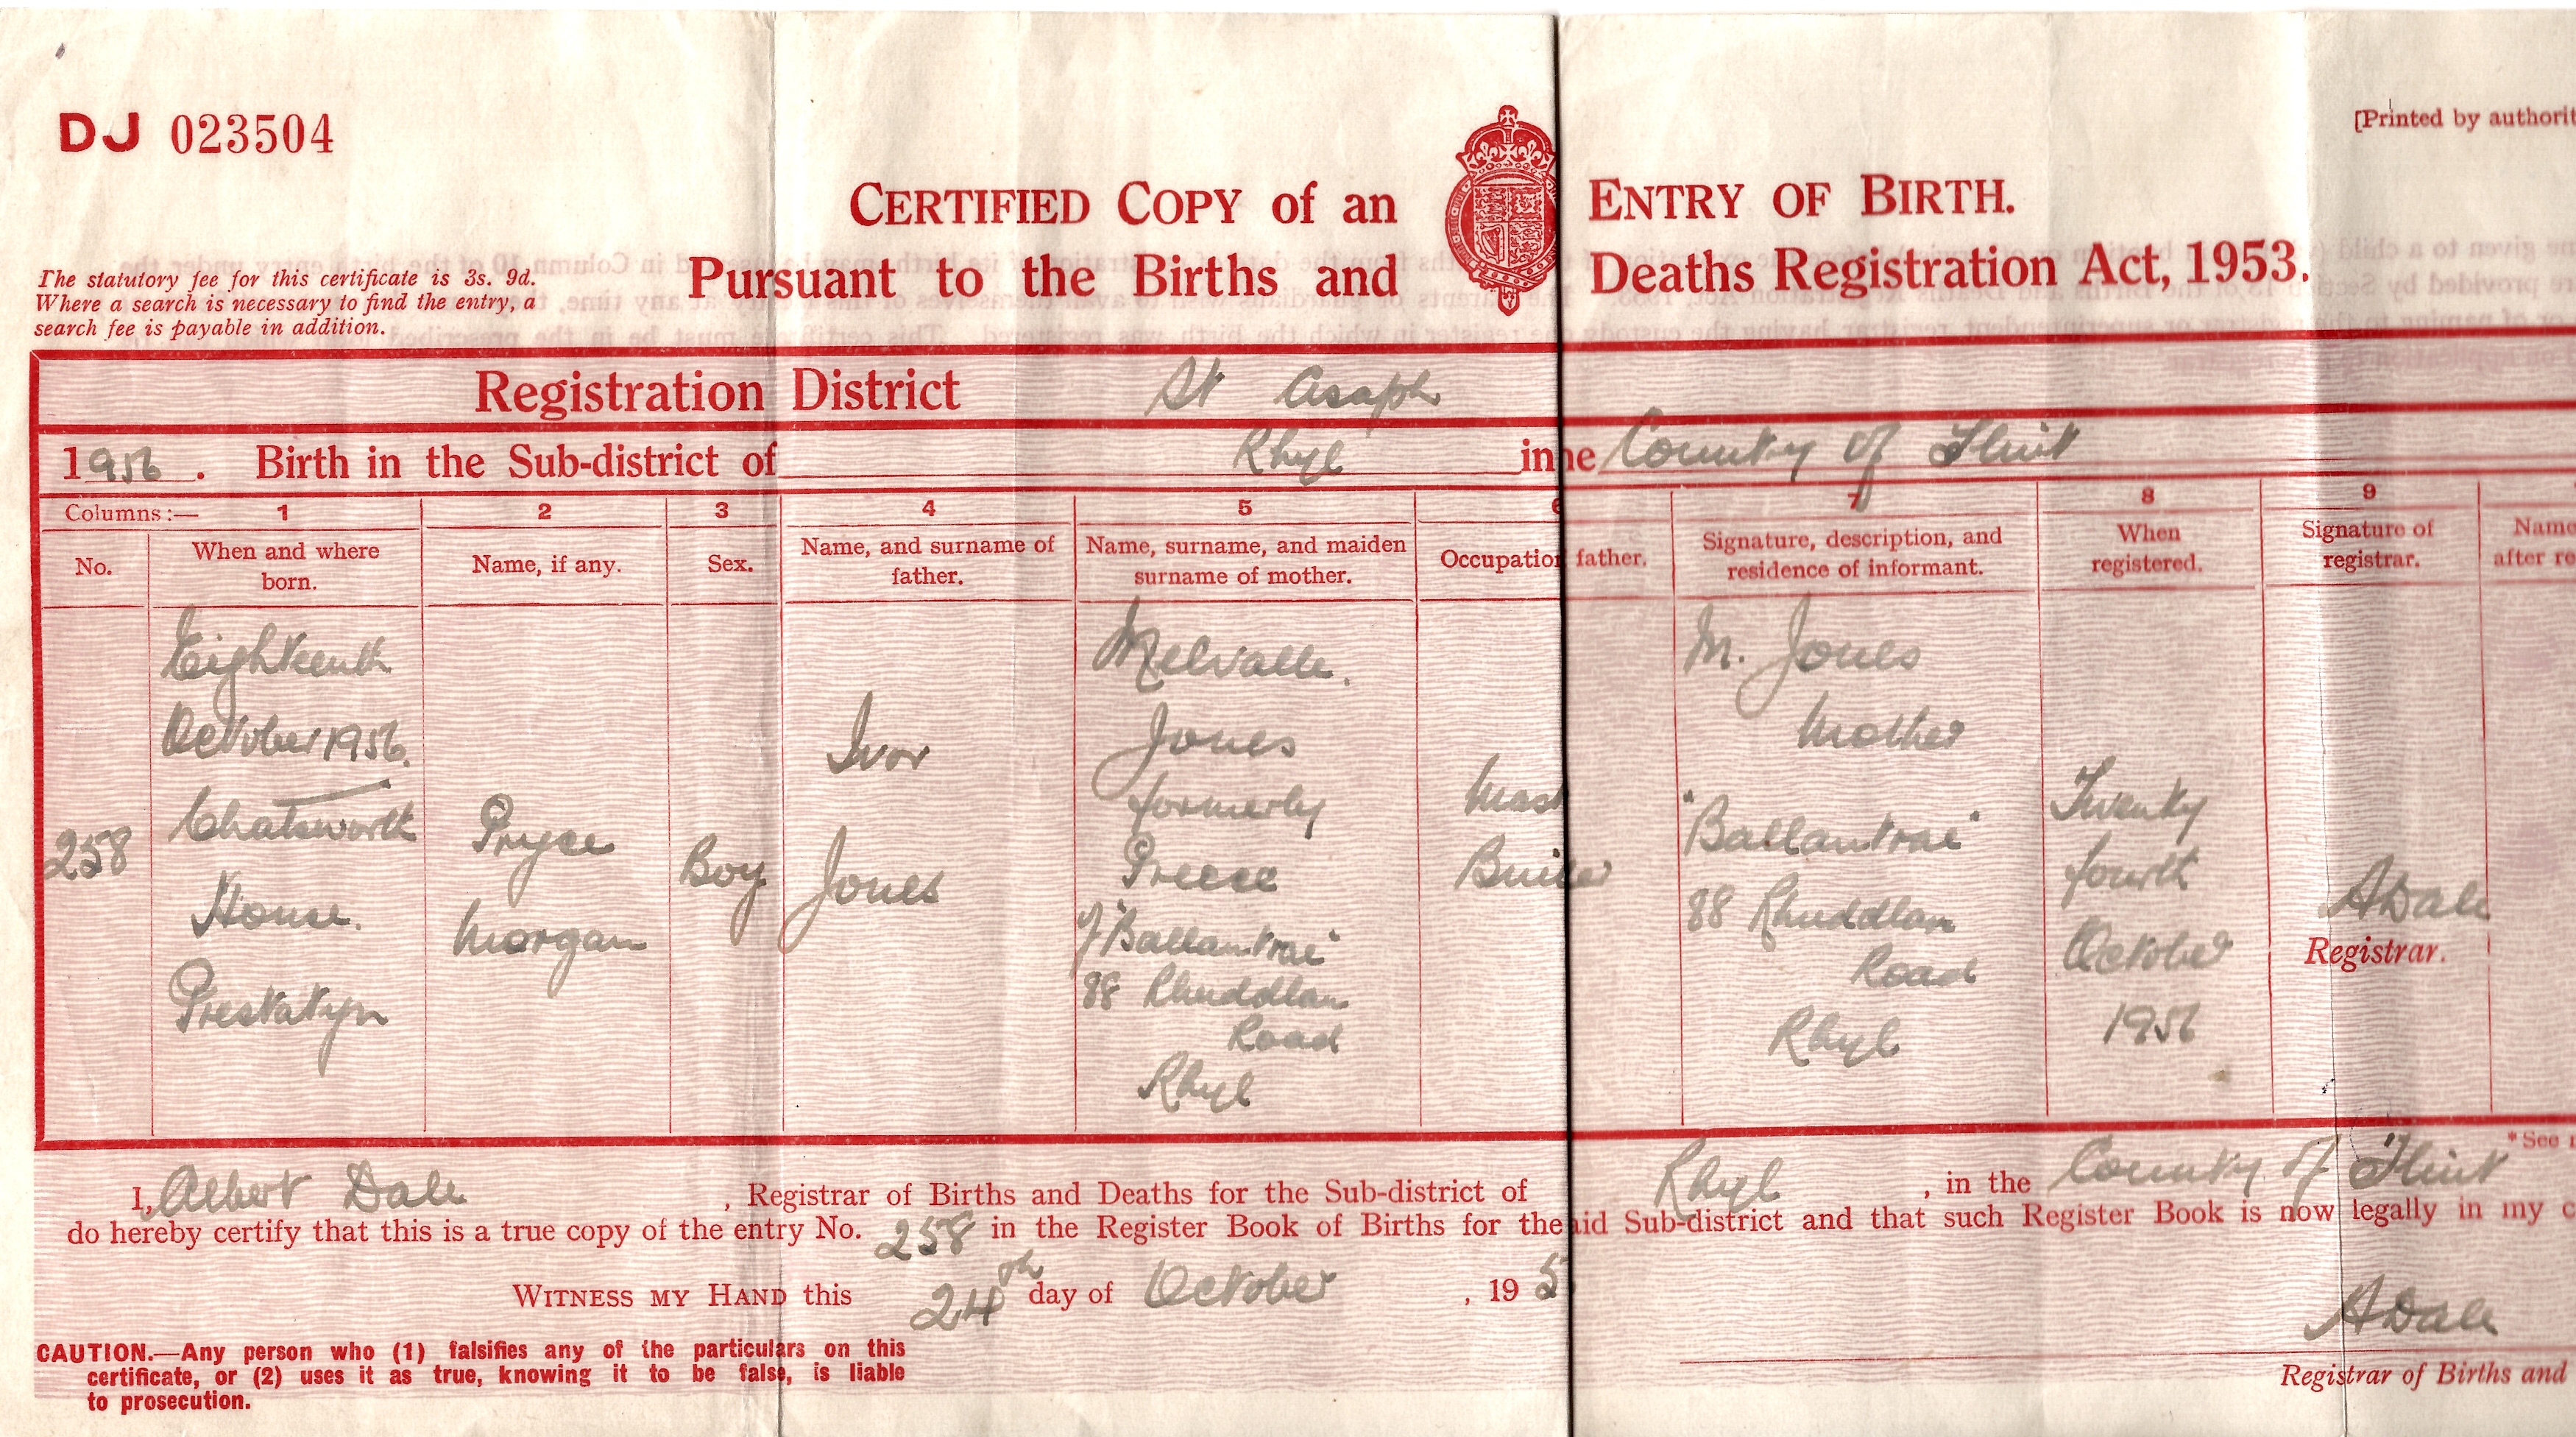 DJ 023504
[Printed by authorit
CERTIFIED COPY of an ENTRY OF BIRTH.
Pursuant to the Births and Deaths Registration Act, 1953.
The statutory fee for this certificate is 3s. 9d.
Where a search is necessary to find the entry, a
search fee is payable in addition.
Registration District St Asaph
1956. Birth in the Sub-district of Rhyl in he County of Flint
Columns:— 1 2 3 4 5 6 7 8 9
No.
When and where
born.
Name, if any.
Sex.
Name, and surname of
father.
Name, surname, and maiden
surname of mother.
Occupation father.
Signature, description, and
residence of informant.
When
registered.
Signature of
registrar.
Name
after re
258
Eighteenth
October 1956.
Chatsworth
House.
Prestatyn
Pryce
Morgan
Boy
Ivor
Jones
Melvalle.
Jones
formerly
Preece
of "Ballantrae"
88 Rhuddlan
Road
Rhyl
Mast
Buil er
M. Jones
Mother
"Ballantrae"
88 Rhuddlan
Road
Rhyl
Twenty
fourth
October
1956
ADale
Registrar.
*See
I, Albert Dale, Registrar of Births and Deaths for the Sub-district of Rhyl, in the County of Flint
do hereby certify that this is a true copy of the entry No. 258 in the Register Book of Births for the aid Sub-district and that such Register Book is now legally in my c
WITNESS MY HAND this 24th day of October, 19 5
ADale
Registrar of Births and
CAUTION.—Any person who (1) falsifies any of the particulars on this
certificate, or (2) uses it as true, knowing it to be false, is liable
to prosecution.